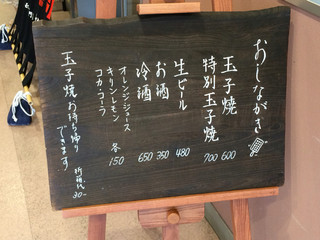 おしながき
玉子焼 600
特別玉子焼 700
生ビール 480
お酒 350
冷酒 650
オレンジジュース
キリンレモン
コカ・コーラ
各150
玉子焼お持ち帰り
できます
折箱代